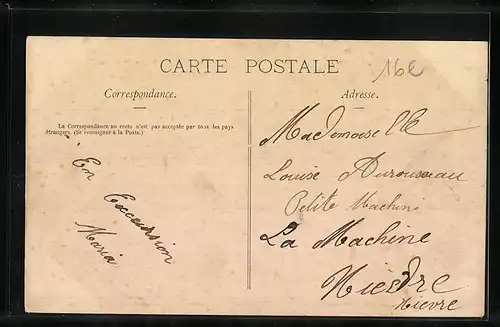 CARTE POSTALE
16e
Correspondance.
La Correspondance au recto n'est pas acceptée par tous les pays
étrangers. (Se renseigner à la Poste.)
En Excursion
Maria
Adresse.
Mademoiselle
Louise
Petite Machine
La Machine
Nièvre
Nievre